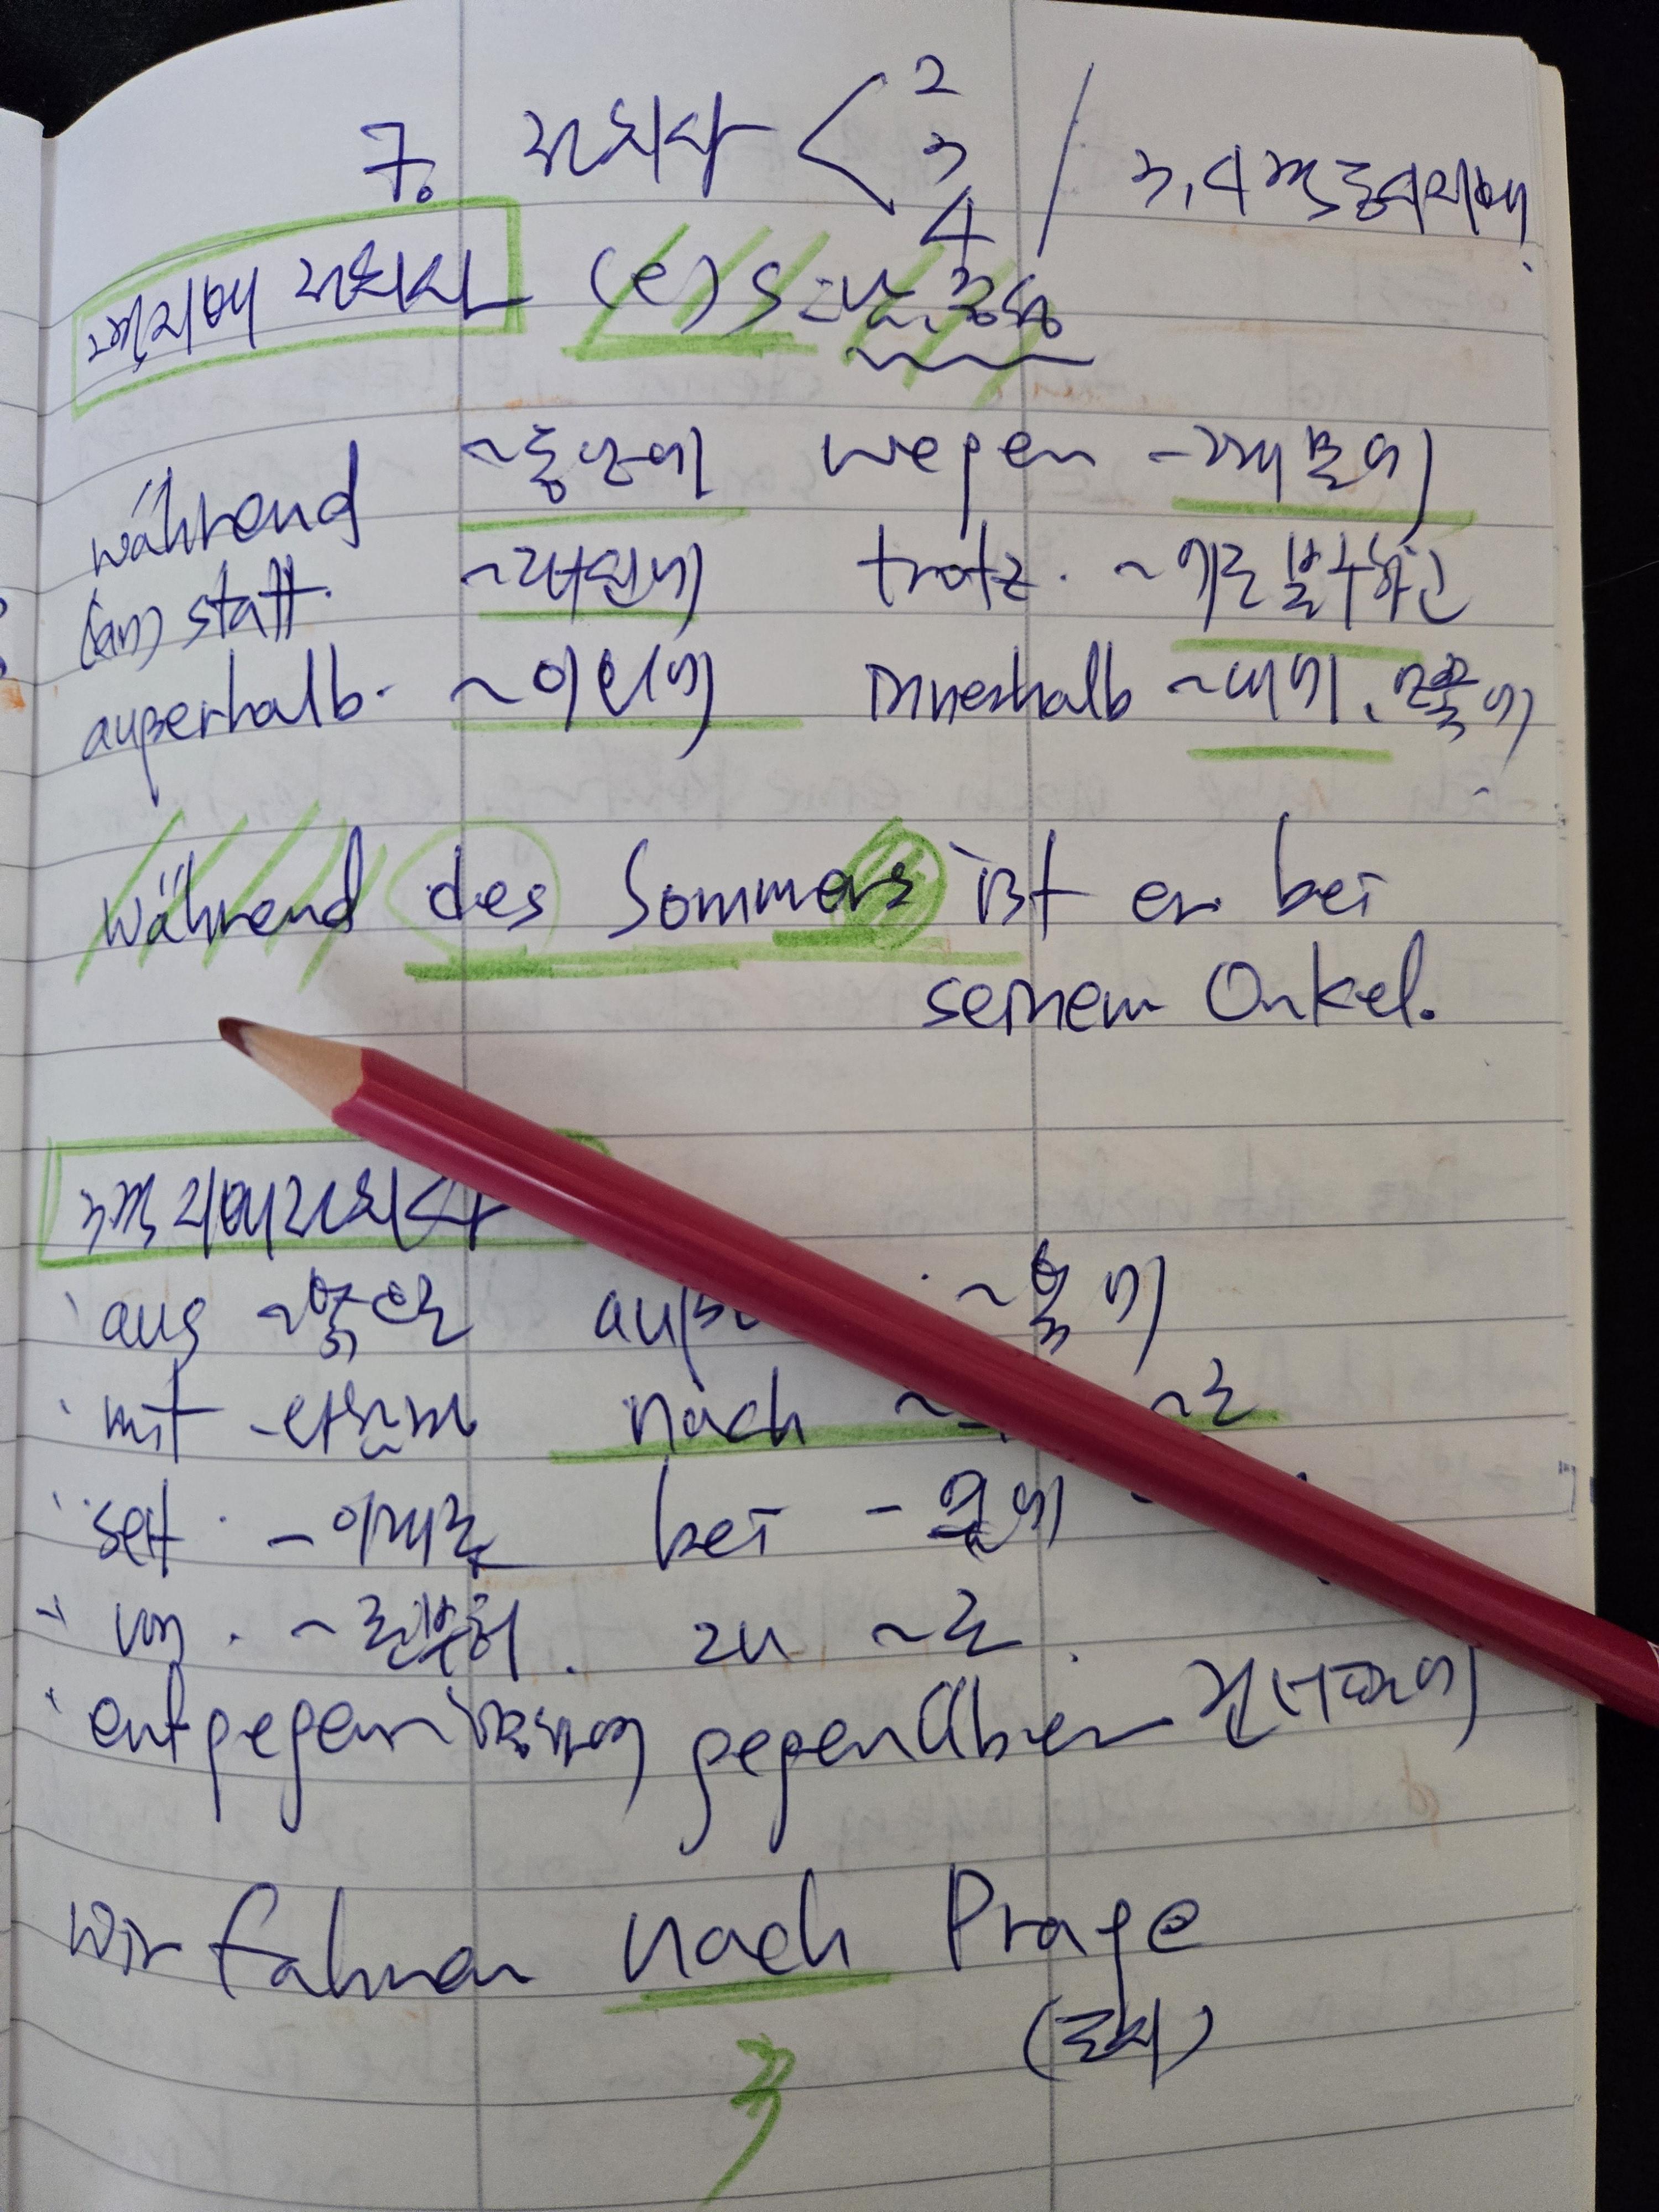 7. 전치사 < 2 3 4 / 3,4격 동시지배
2격지배 전치사 (e)s 남.중성
während ~동안에 wegen -때문에
(an)statt. ~대신에 trotz. ~에도 불구하고
außerhalb. ~이외에 innerhalb ~내에. 안쪽에
während des Sommers ist er bei
seinem Onkel.
3격지배전치사
aus ~밖으로 ~밖에
mit -와 함께 nach ~로
seit -이래로 bei - 옆에
von. ~로부터. zu ~로.
entgegen gegenüber 건너편에
Wir fahren nach Prage
(도시)
3